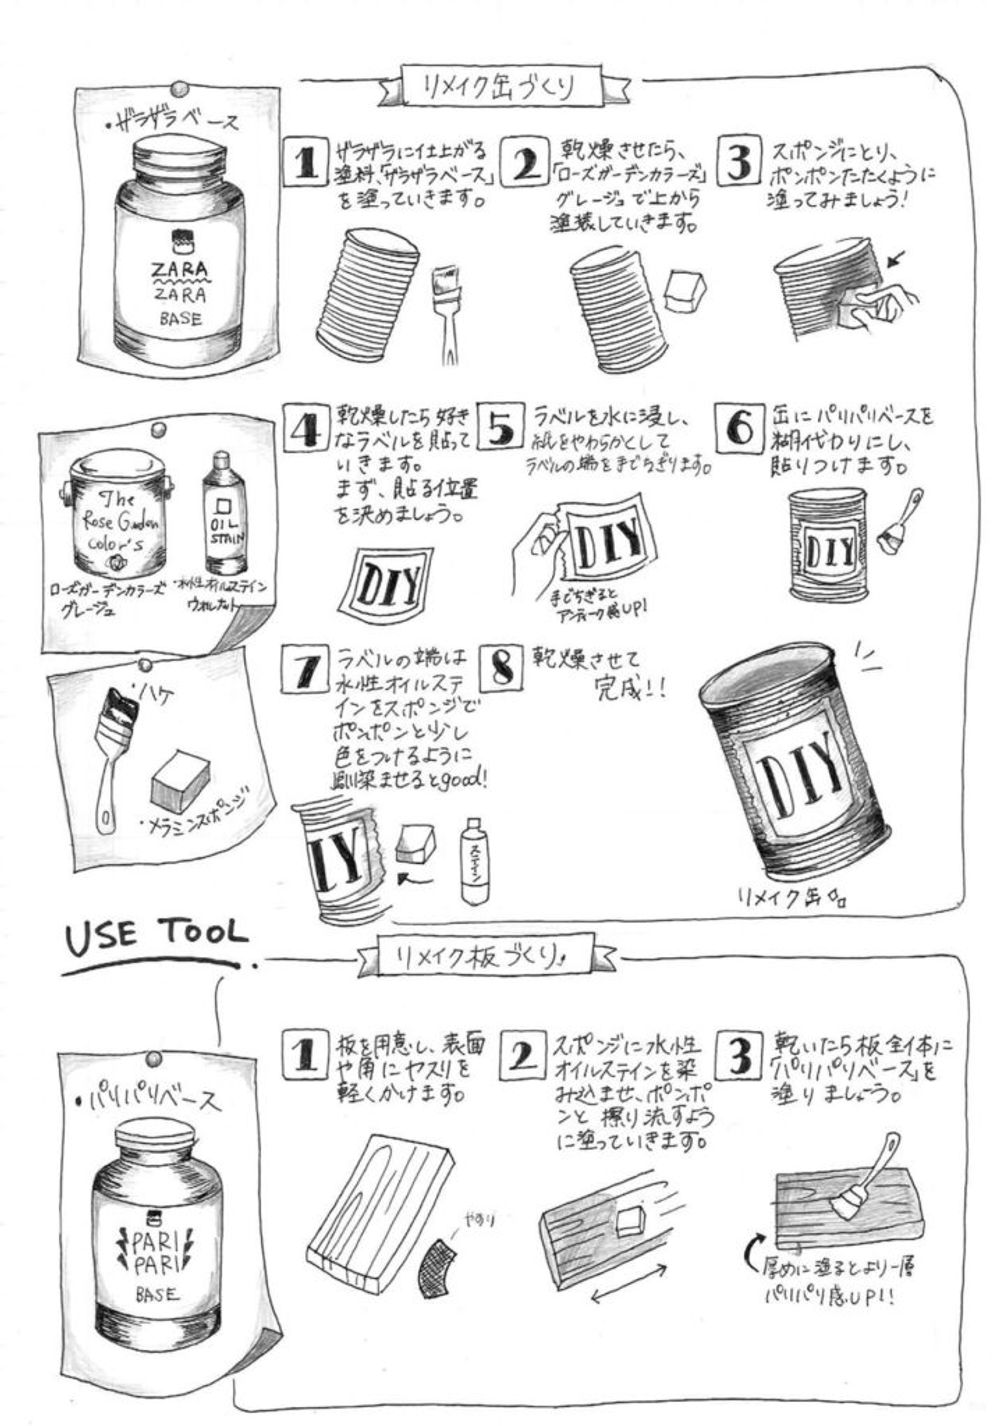 リメイク缶づくり
・ザラザラベース
ZARA
ZARA
BASE
1
ザラザラに仕上がる
塗料、「ザラザラベース」
を塗っていきます。
2
乾燥させたら、
「ローズガーデンカラーズ」
グレージュで上から
塗装していきます。
3
スポンジにとり、
ポンポンたたくように
塗ってみましょう!
The
Rose Garden
Color's
OIL
STAIN
ローズガーデンカラーズ
グレージュ
・水性オイルステイン
ウォルナット
4
乾燥したら好き
なラベルを貼って
いきます。
まず、貼る位置
を決めましょう。
DIY
5
ラベルを水に浸し、
紙をやわらかくして
ラベルの端を手でちぎります。
DIY
手でちぎると
アンティーク感UP!
6
缶にパリパリベースを
糊代わりにし、
貼りつけます。
DIY
・ハケ
・メラミンスポンジ
7
ラベルの端は
水性オイルステ
インをスポンジで
ポンポンと少し
色をつけるように
馴染ませるとgood!
IY
ステイン
8
乾燥させて
完成!!
DIY
リメイク缶
USE TOOL
リメイク板づくり
・パリパリベース
PARI
PARI
BASE
1
板を用意し、表面
や角にヤスリを
軽くかけます。
やすり
2
スポンジに水性
オイルステインを染
み込ませ、ポンポ
ンと擦り流すよう
に塗っていきます。
3
乾いたら板全体に
「パリパリベース」を
塗りましょう。
厚めに塗るとより一層
パリパリ感UP!!